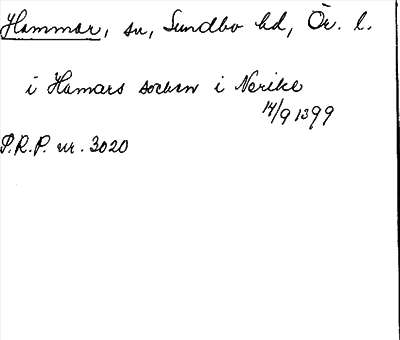 Hammar, sn, Sundbo hd, Ör. l.
i Hamars socken i Nerike
14/9 1399
P.R.P. nr. 3020